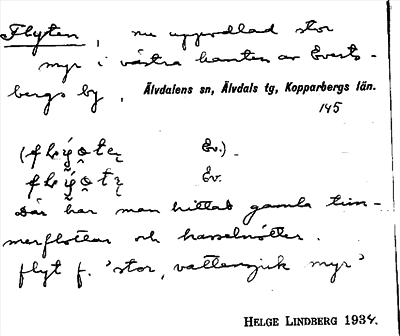 Flyten, nu uppodlad stor
myr i västra kanten av Everts-
bergs by, Älvdalens sn, Älvdals tg, Kopparbergs län.
145
Ev.)
Ev.
Där har man hittat gamla tim-
merflottar och hasselnötter.
flyt f. 'stor, vattensjuk myr'
HELGE LINDBERG 1934.